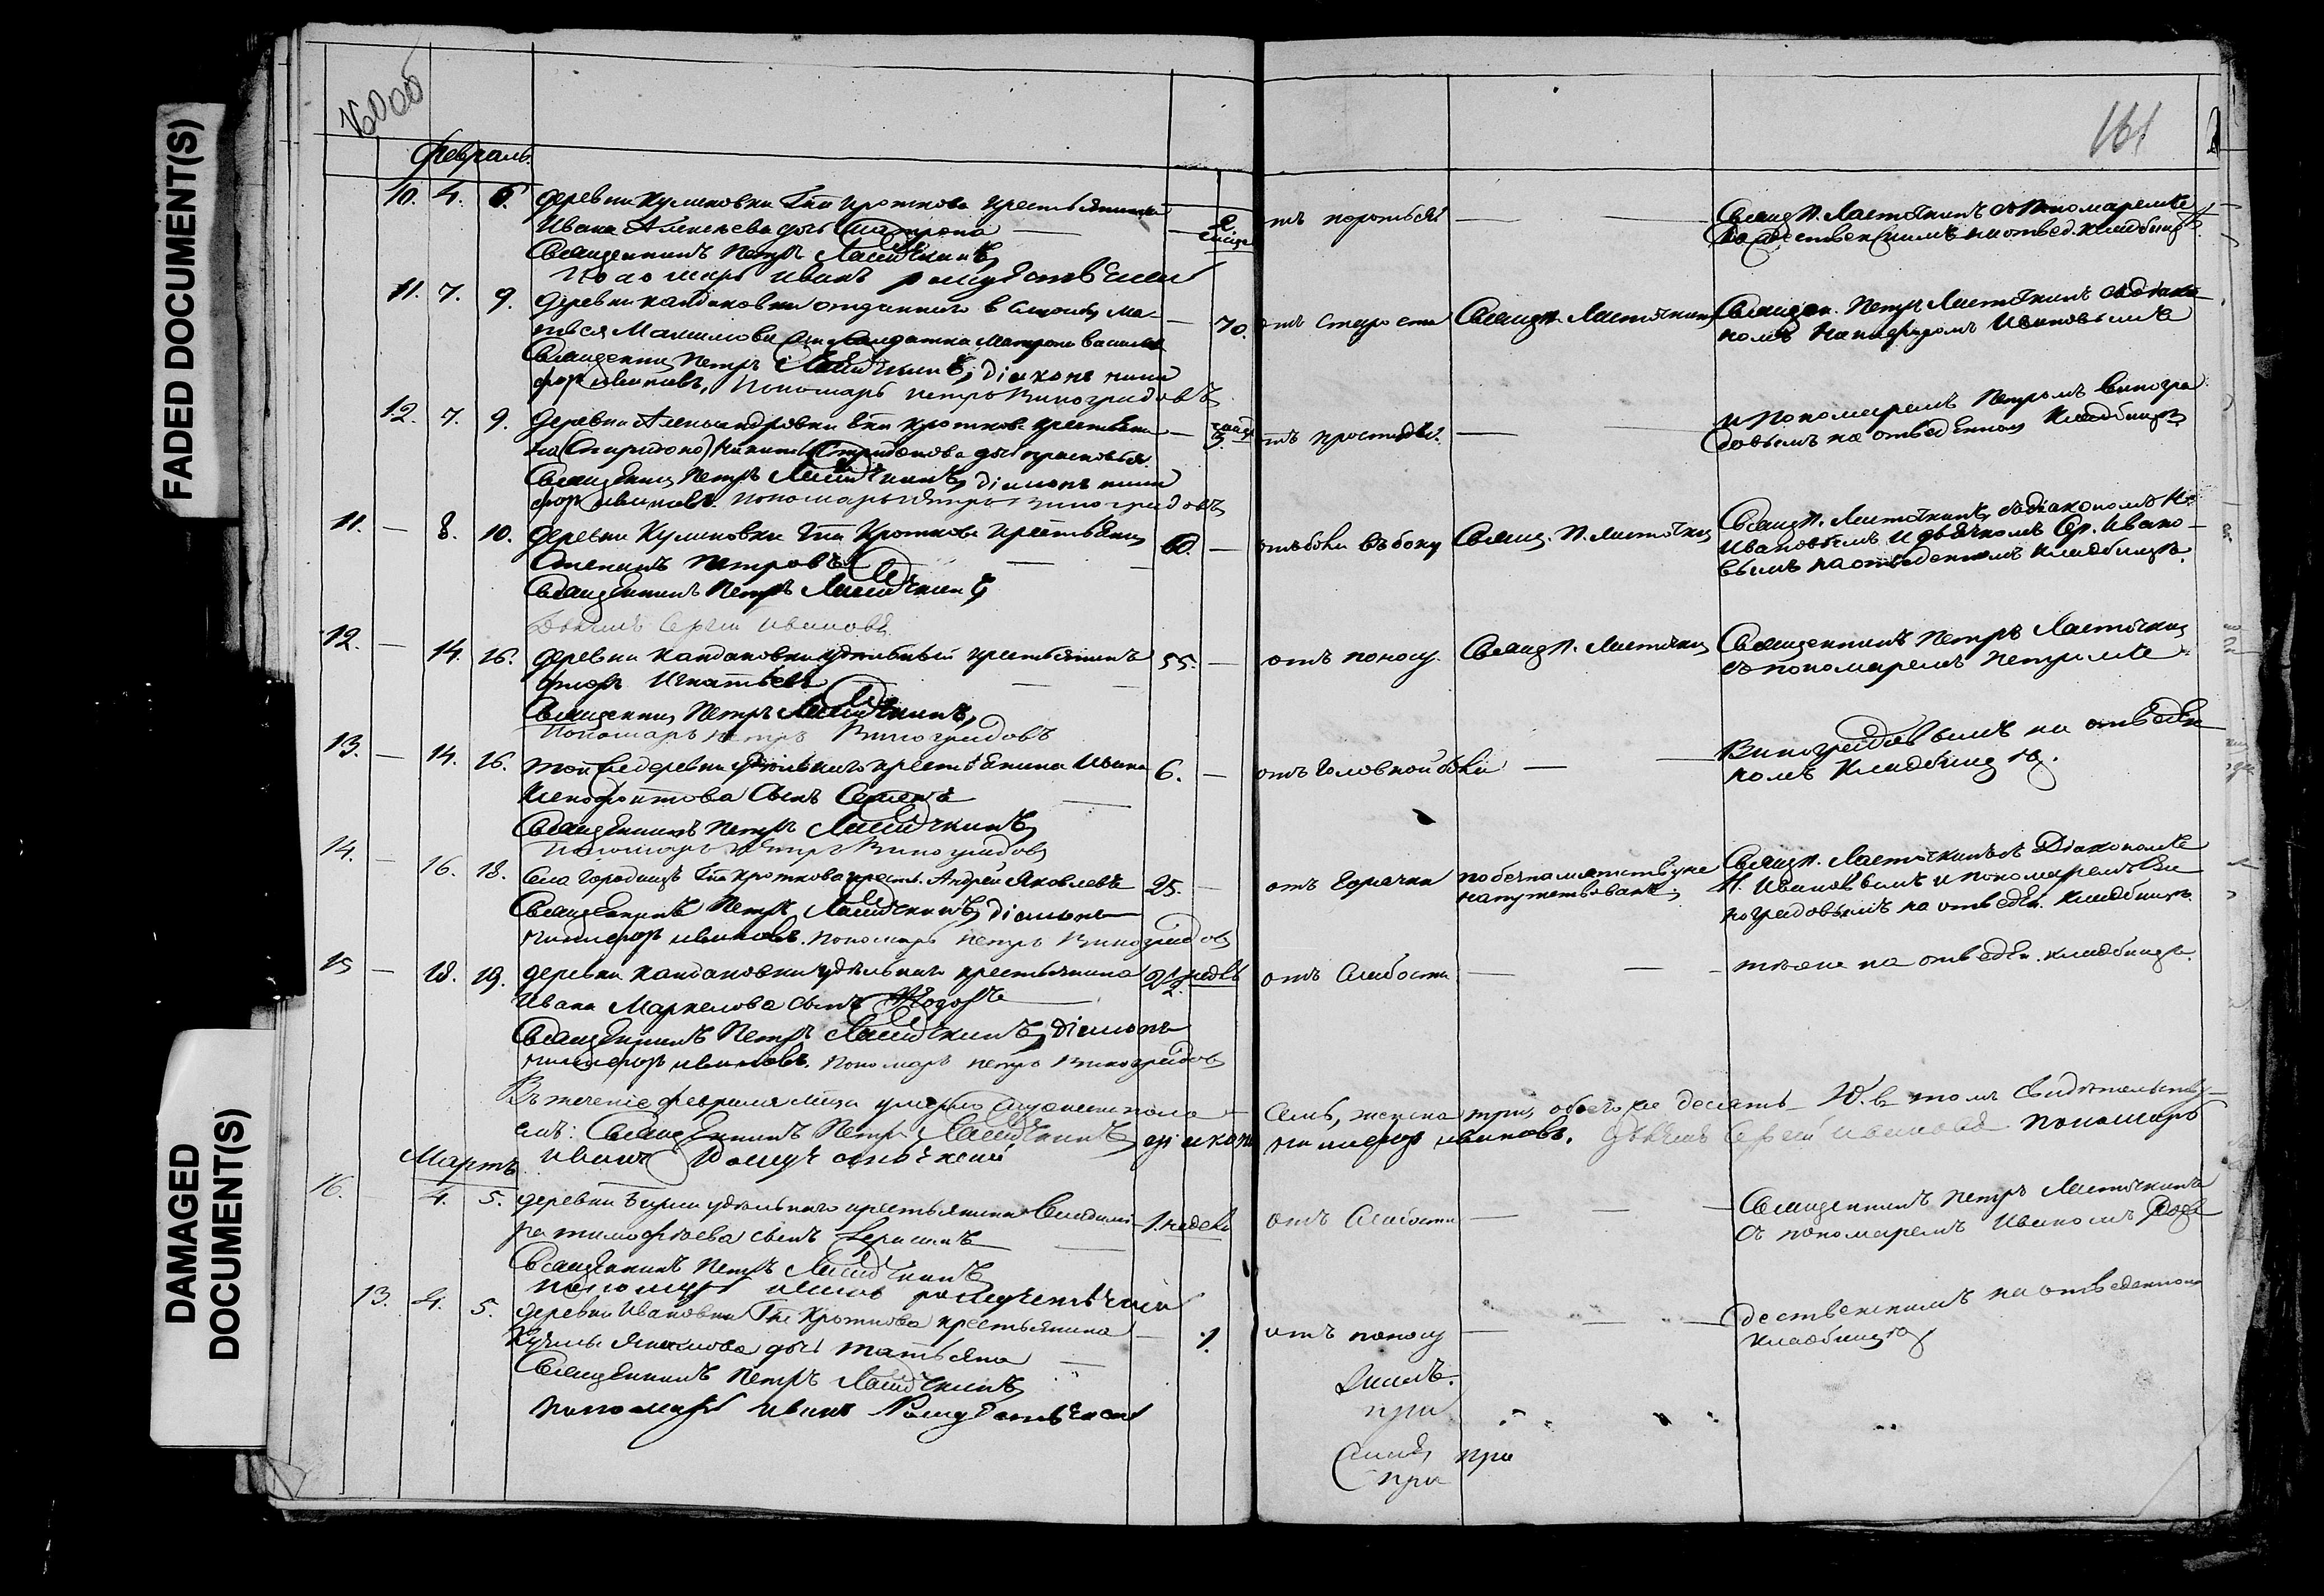 FADED DOCUMENT(S)
DAMAGED
DOCUMENT(S)
161
Февраль.
10. 4. 6. деревни Куликовки Гна Кроткова крестьянина
Ивана Алексеева дочь Матрона — 2.
Священникъ Петръ Ласточкинъ,
Пономарь Иванъ Рождественскій
отъ коротьевъ — —
Свящ. П. Ласточкинъ съ Пономаремъ
Рождественскимъ на отвед. кладбищѣ.
11. 7. 9. деревни Кандаковки отданнаго в
Солдатка Матрона — 70.
Священникъ Петръ Ласточкинъ, діаконъ Ники
форъ Ивановъ, Пономарь Петръ Виноградовъ
отъ старости
Свящ. П. Ласточкинъ
Священ. Петръ Ласточкинъ съ діако
номъ Никифоромъ Ивановымъ
12. 7. 9. деревни Александровки Гна Кроткова крестьяни
на Никиты Спиридонова дочь Прасковья — 3.
Священникъ Петръ Ласточкинъ, діаконъ Ники
форъ Ивановъ. Пономарь Петръ Виноградовъ
отъ простуды. — —
и Пономаремъ Петромъ Виногра
довымъ на отведенномъ кладбищѣ
11. — 8. 10. деревни Куликовки Гна Кроткова крестьянинъ
Петровъ 60. —
Священникъ Петръ Ласточкинъ,
Дьячекъ Сергѣй Ивановъ
отъ боли въ боку
Свящ. П. Ласточкинъ
Свящ. П. Ласточкинъ, съ діакономъ Н.
Ивановымъ и дьячкомъ Ср. Ивано-
вымъ на отведенномъ кладбищѣ.
12. — 14. 16. деревни Кандаковки удѣльный крестьянинъ
Игнатьевъ 55. —
Священникъ Петръ Ласточкинъ,
Пономарь Петръ Виноградовъ
отъ поносу.
Свящ. П. Ласточкинъ
Священникъ Петръ Ласточкинъ
съ пономаремъ Петромъ
13. — 14. 16. той же деревни удѣльнаго крестьянина Ивана
Ксенофонтова сынъ Семенъ 6. —
Священникъ Петръ Ласточкинъ,
Пономарь Петръ Виноградовъ
отъ головной боли — —
Виноградовымъ на отведен
номъ кладбищѣ.
14. — 16. 18. села Городищъ Гна Кроткова крест. Андрей Яковлевъ 25. —
Священникъ Петръ Ласточкинъ, діаконъ
Никифоръ Ивановъ. Пономарь Петръ Виноградовъ
отъ горячки
по безпамятству не
напутствованъ.
Свящ. П. Ласточкинъ съ Діакономъ
Н. Ивановымъ и пономаремъ Ви
ноградовымъ на отведен. кладбищѣ.
15 — 18. 19. деревни Кандаковки удѣльнаго крестьянина
Ивана Маркелова сынъ Ѳедоръ 2 недѣл
Священникъ Петръ Ласточкинъ, діаконъ
Никифоръ Ивановъ. Пономарь Петръ Виноградовъ
отъ слабости — —
тѣже на отведен. кладбищѣ.
Въ теченіе февраля мѣсца умерло мужеска пола
семь, женска три, обоего же десять 10. в томъ свидѣтельству-
емъ: Священникъ Петръ Ласточкинъ, діаконъ Никифоръ Ивановъ. Дьячекъ Сергѣй Ивановъ Пономарь
Иванъ Рождественскій
Мартъ
16. 4. 5. деревни удѣльнаго крестьянина Владими
ра Тимофѣева сынъ Герасимъ — 1. недѣл
Священникъ Петръ Ласточкинъ,
Пономарь Иванъ Рождественскій
отъ слабости — — —
Священникъ Петръ Ласточкинъ
съ пономаремъ Иваномъ Рож
13. 4. 5. деревни Ивановки Гна Кроткова крестьянина
Кузьмы дочь Татьяна — 1.
Священникъ Петръ Ласточкинъ,
Пономарь Иванъ Рождественскій
отъ поносу — — —
дественскимъ на отведенномъ
кладбищѣ
при
при
при